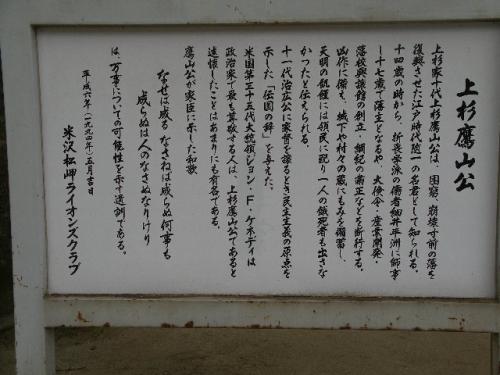 上杉鷹山公
上杉家十代上杉鷹山公は、困窮、崩壊寸前の藩を
復興させた江戸時代随一の名君として知られる。
十四歳の時から、折衷学派の儒者細井平洲に師事
し十七歳で藩主となるや、大倹令・産業開発・
藩校興譲館の創立、綱紀の粛正などを断行する。
凶作に備え、城下や村々の蔵にもみを備蓄し、
天明の飢饉には領民に配り一人の餓死者も出さな
かったと伝えられる。
十一代治広公に家督を譲るとき民主主義の原点を
示した「伝国の辞」を与えた。
米国第三十五代大統領ジョン・F・ケネディは
政治家で最も尊敬する人は、上杉鷹山公であると
述懐したことはあまりにも有名である。
鷹山公が家臣に示した和歌
なせば成る なさねば成らぬ何事も
成らぬは人のなさぬなりけり
は、万事についての可能性を示す遺訓である。
平成六年(一九九四年)五月吉日
米沢松岬ライオンズクラブ